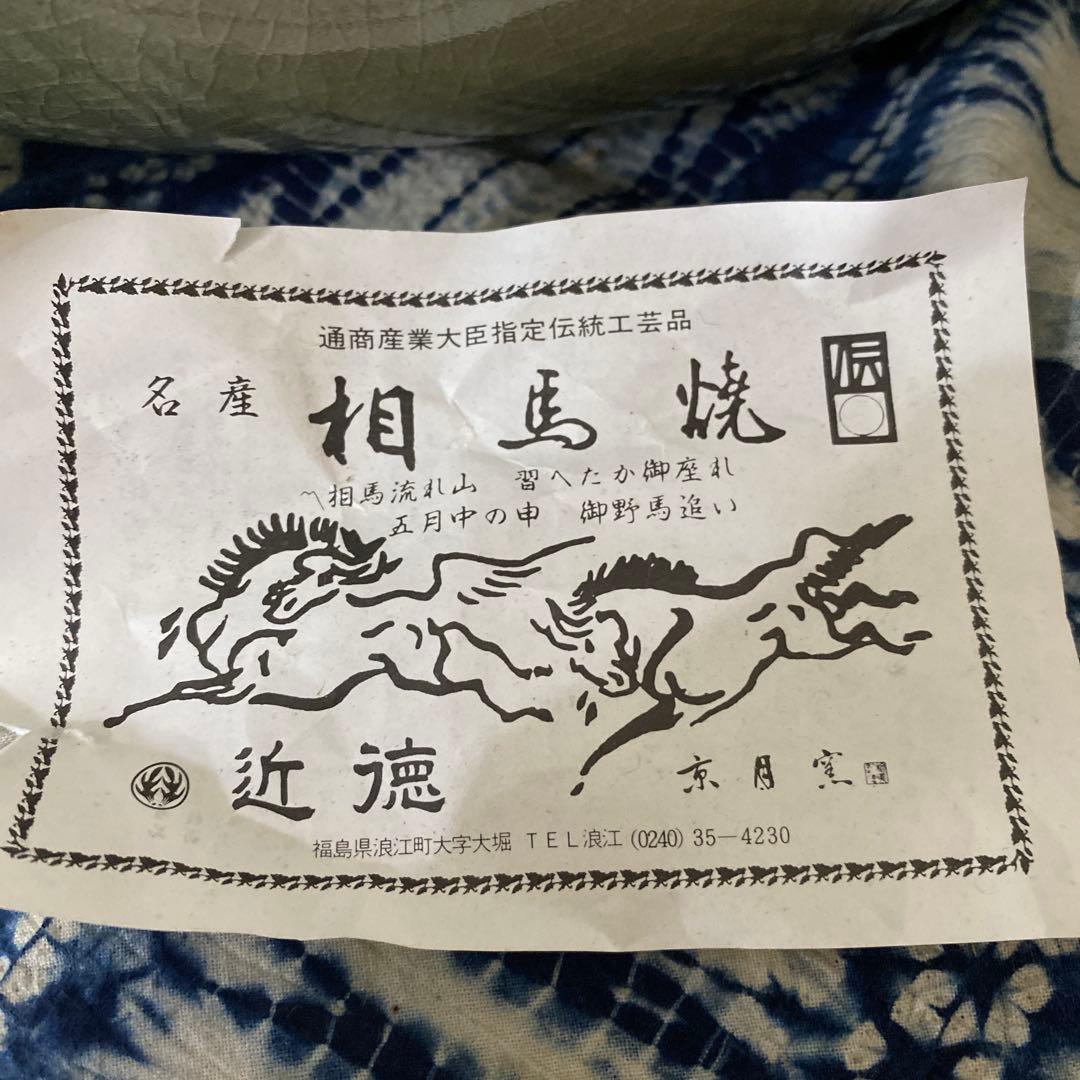 通商産業大臣指定伝統工芸品
名産 相馬焼 伝
〽相馬流れ山 習へたか御座れ
五月中の申 御野馬追い
近徳 京月窯
福島県浪江町大字大堀 TEL浪江(0240)35−4230